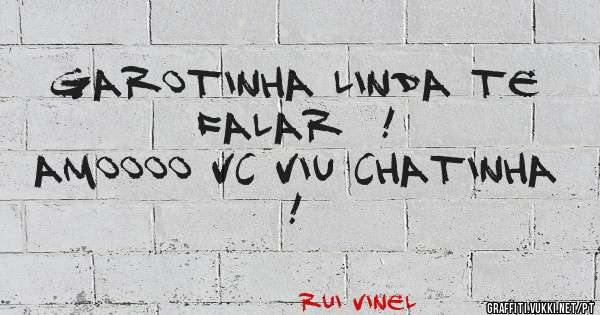 GAROTINHA LINDA TE
FALAR !
AMOOOO VC VIU CHATINHA
!
RUI VINEL
GRAFFITI.VUKKI.NET/PT